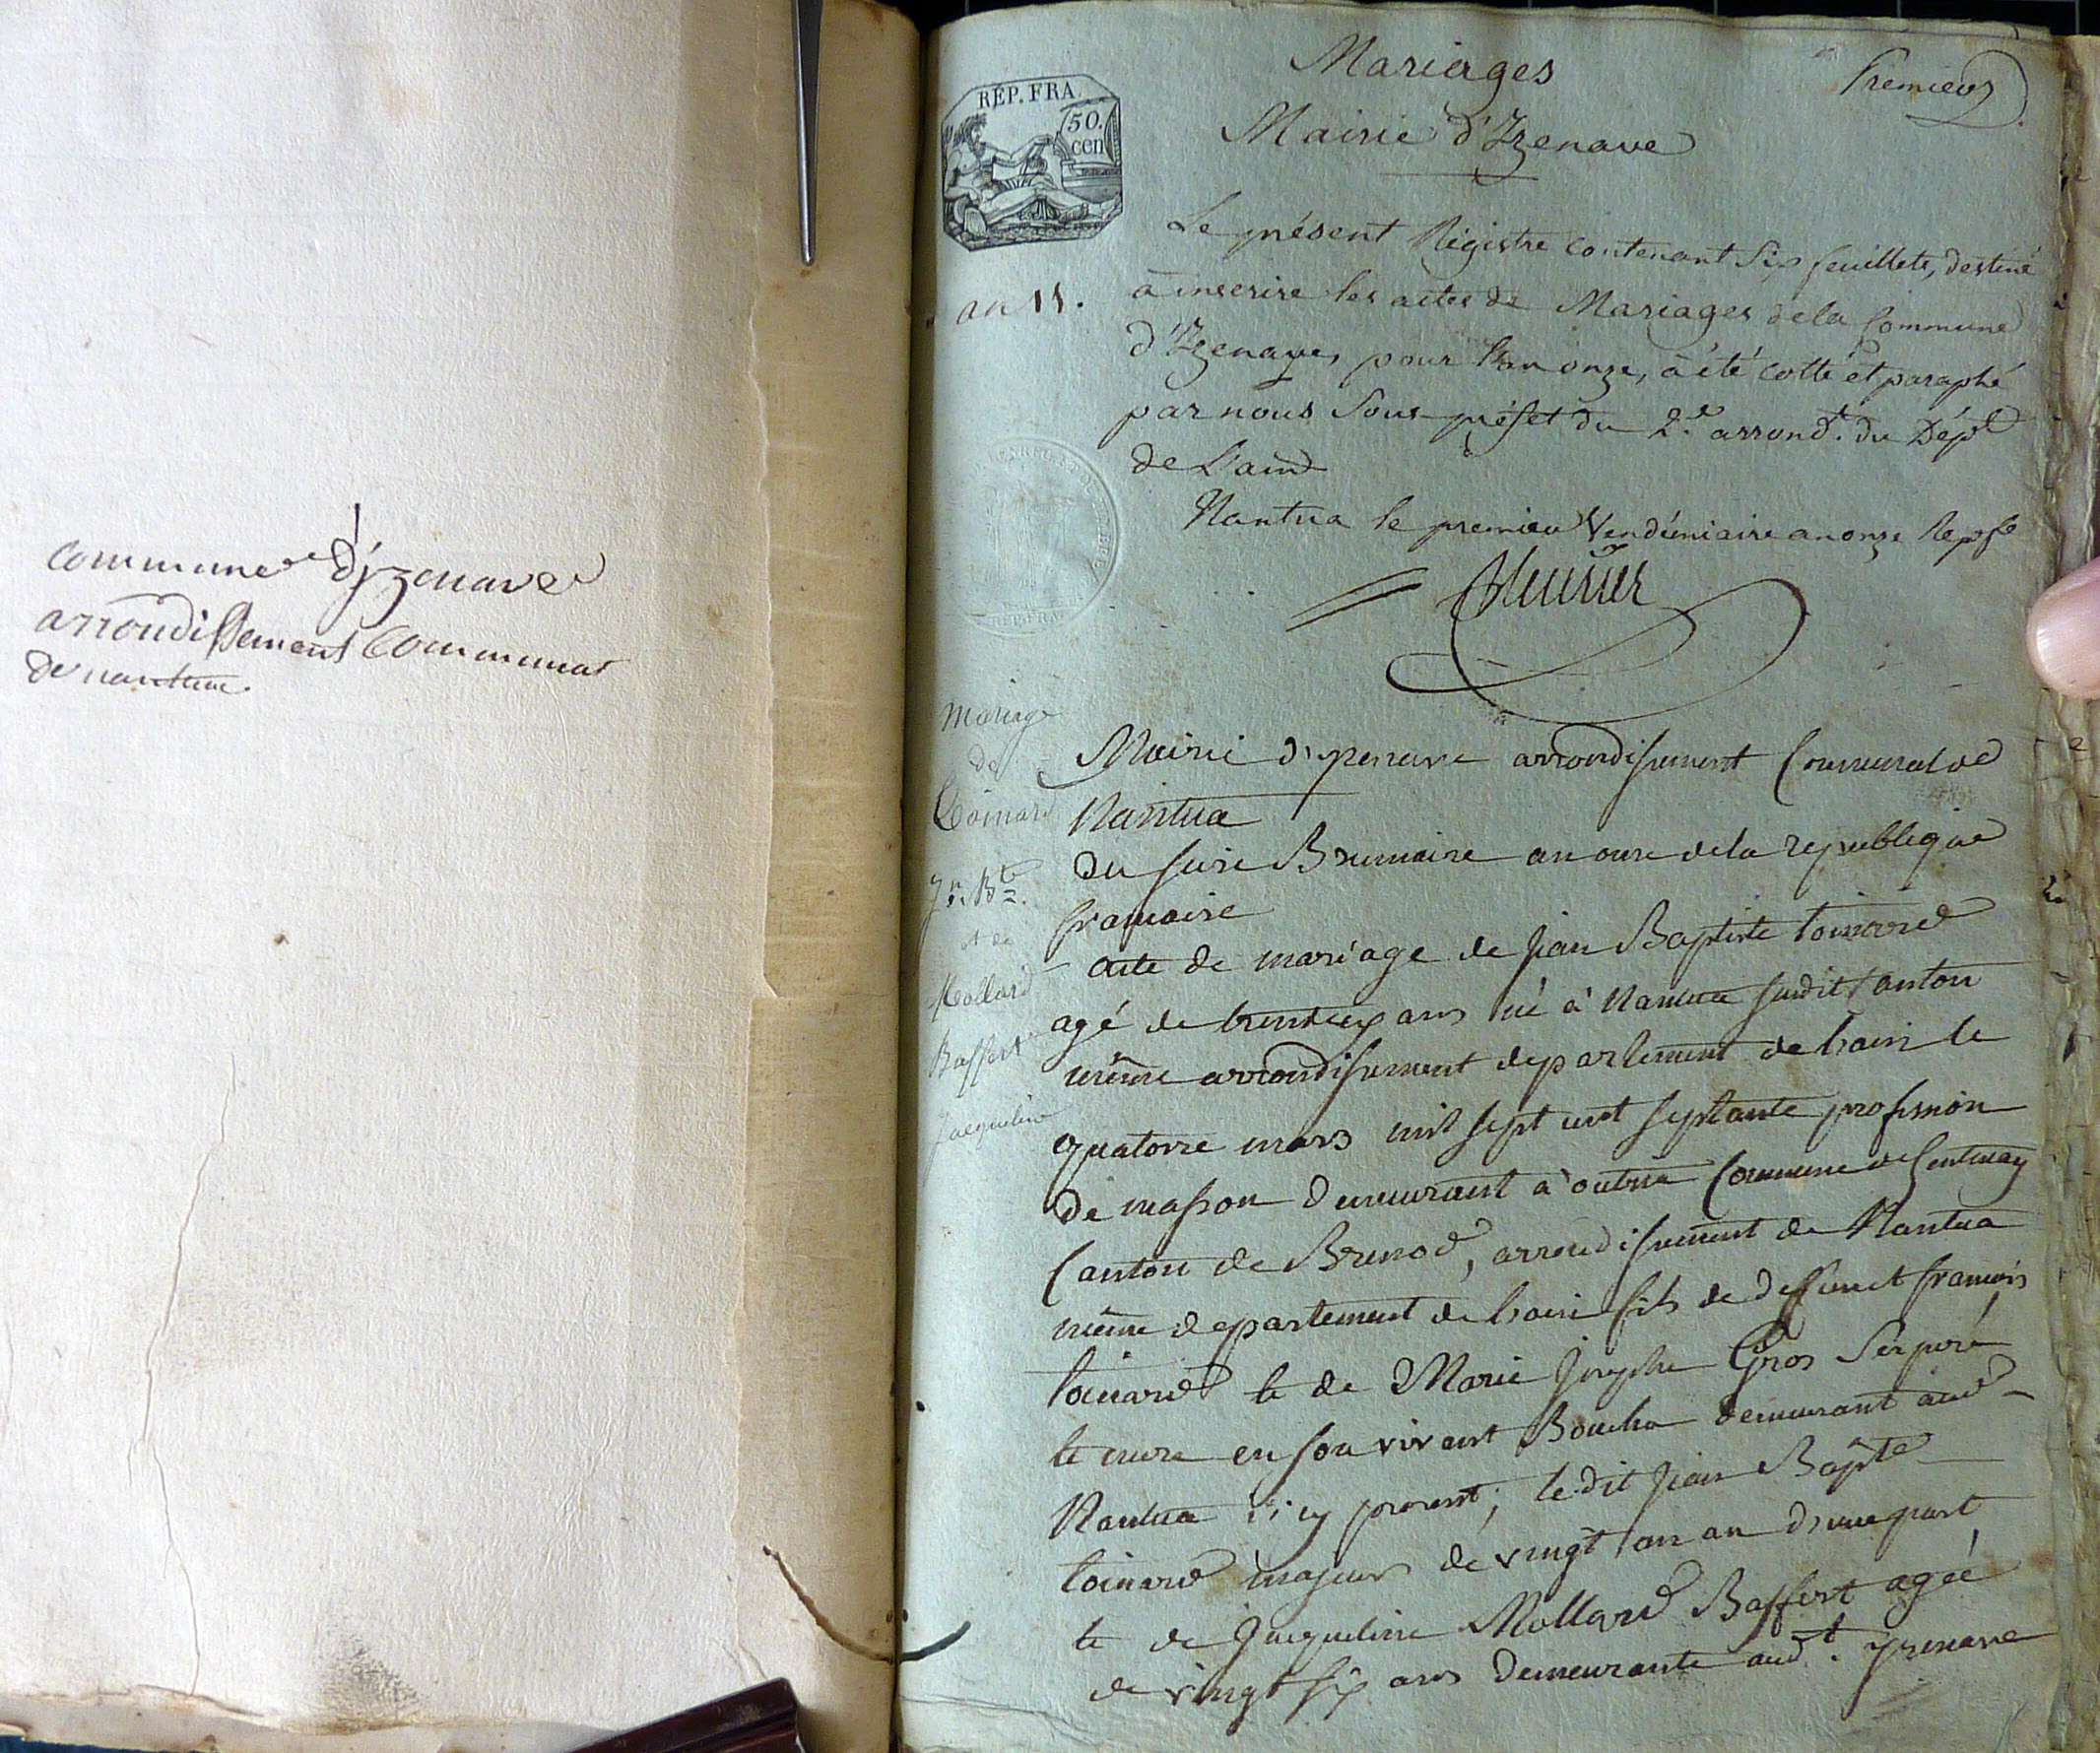 commune d'yzenave
arrondissement communal
de nantua.
Mariages
Premier
Mairie d'Izenave
REP. FRA.
50.
cen
Le présent Régistre contenant Six feuillets, destiné
à inscrire les actes de Mariages de la Commune
d'Izenave, pour l'an onze, à été cotté et paraphé
par nous Sous-préfet du 2.e arrond.t du Dép.t
de L'ain
Nantua le premier Vendémiaire an onze
an 11.
mariage
de
Toinard
Jn. Bte.
et de
Mollard
Baffert
Jacqueline
Mairie d'yzenave arrondissement Communal de
Nantua
du seize Brumaire an onze de la republique
francaise
acte de mariage de jean Baptiste toinard
agé de ans né à Nantua susdit Canton
même arrondissement departement de l'ain le
quatorze mars mil sept cent septante profession
de masson demeurant à outria Commune de
Canton de Brenod, arrondissement de Nantua
même departement de l'ain fils de deffunct francois
toinard te de Marie Josephe Gros Ses peré
te mere en son vivant demeurant aud
Nantua icy present; le dit jean Bapte
toinard majeur de vingt un an d'une part
te de Jacqueline Mollard Baffert agéé
de vingt six ans demeurante aud.t yzenave